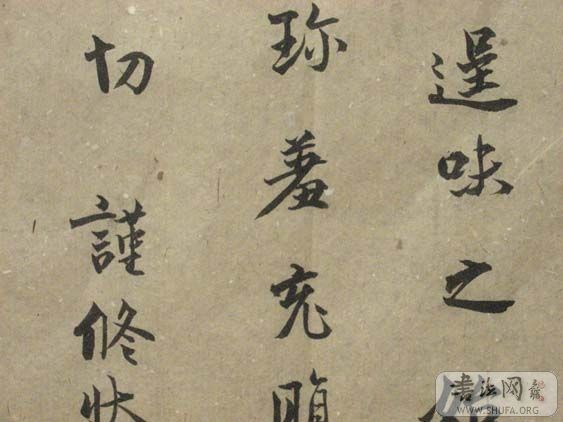 逞味之
珎羞充腹
切謹修状
書法网
WWW.SHUFA.ORG